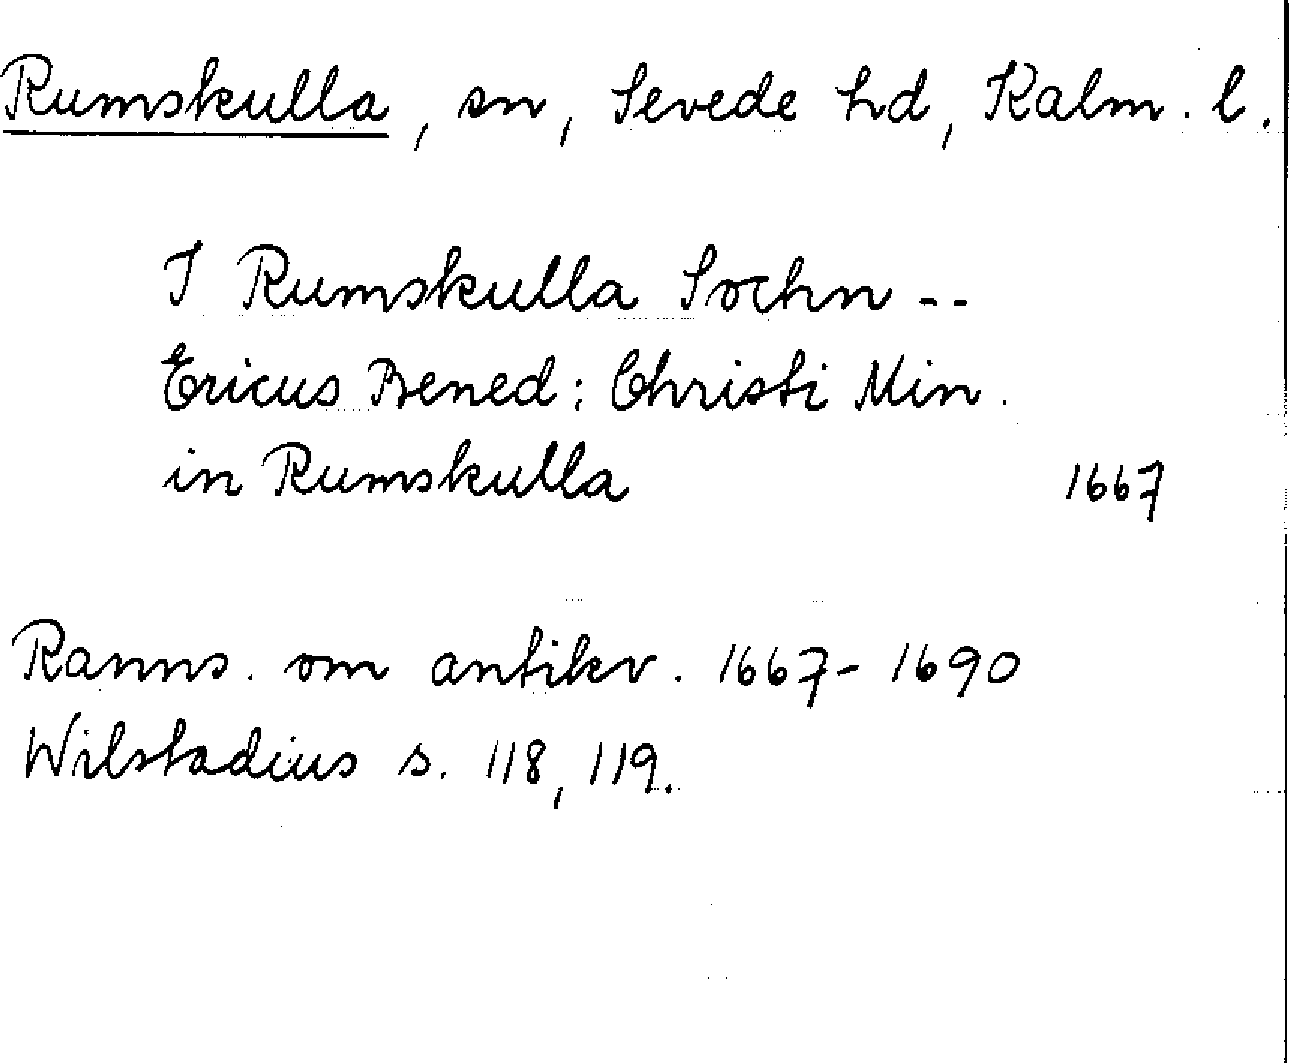 Rumskulla, sn, Sevede hd, Kalm. l.
I Rumskulla Sochn --
Ericus Bened: Christi Min.
in Rumskulla 1667
Ranns. om antikv. 1667-1690
Wilstadius s. 118, 119.